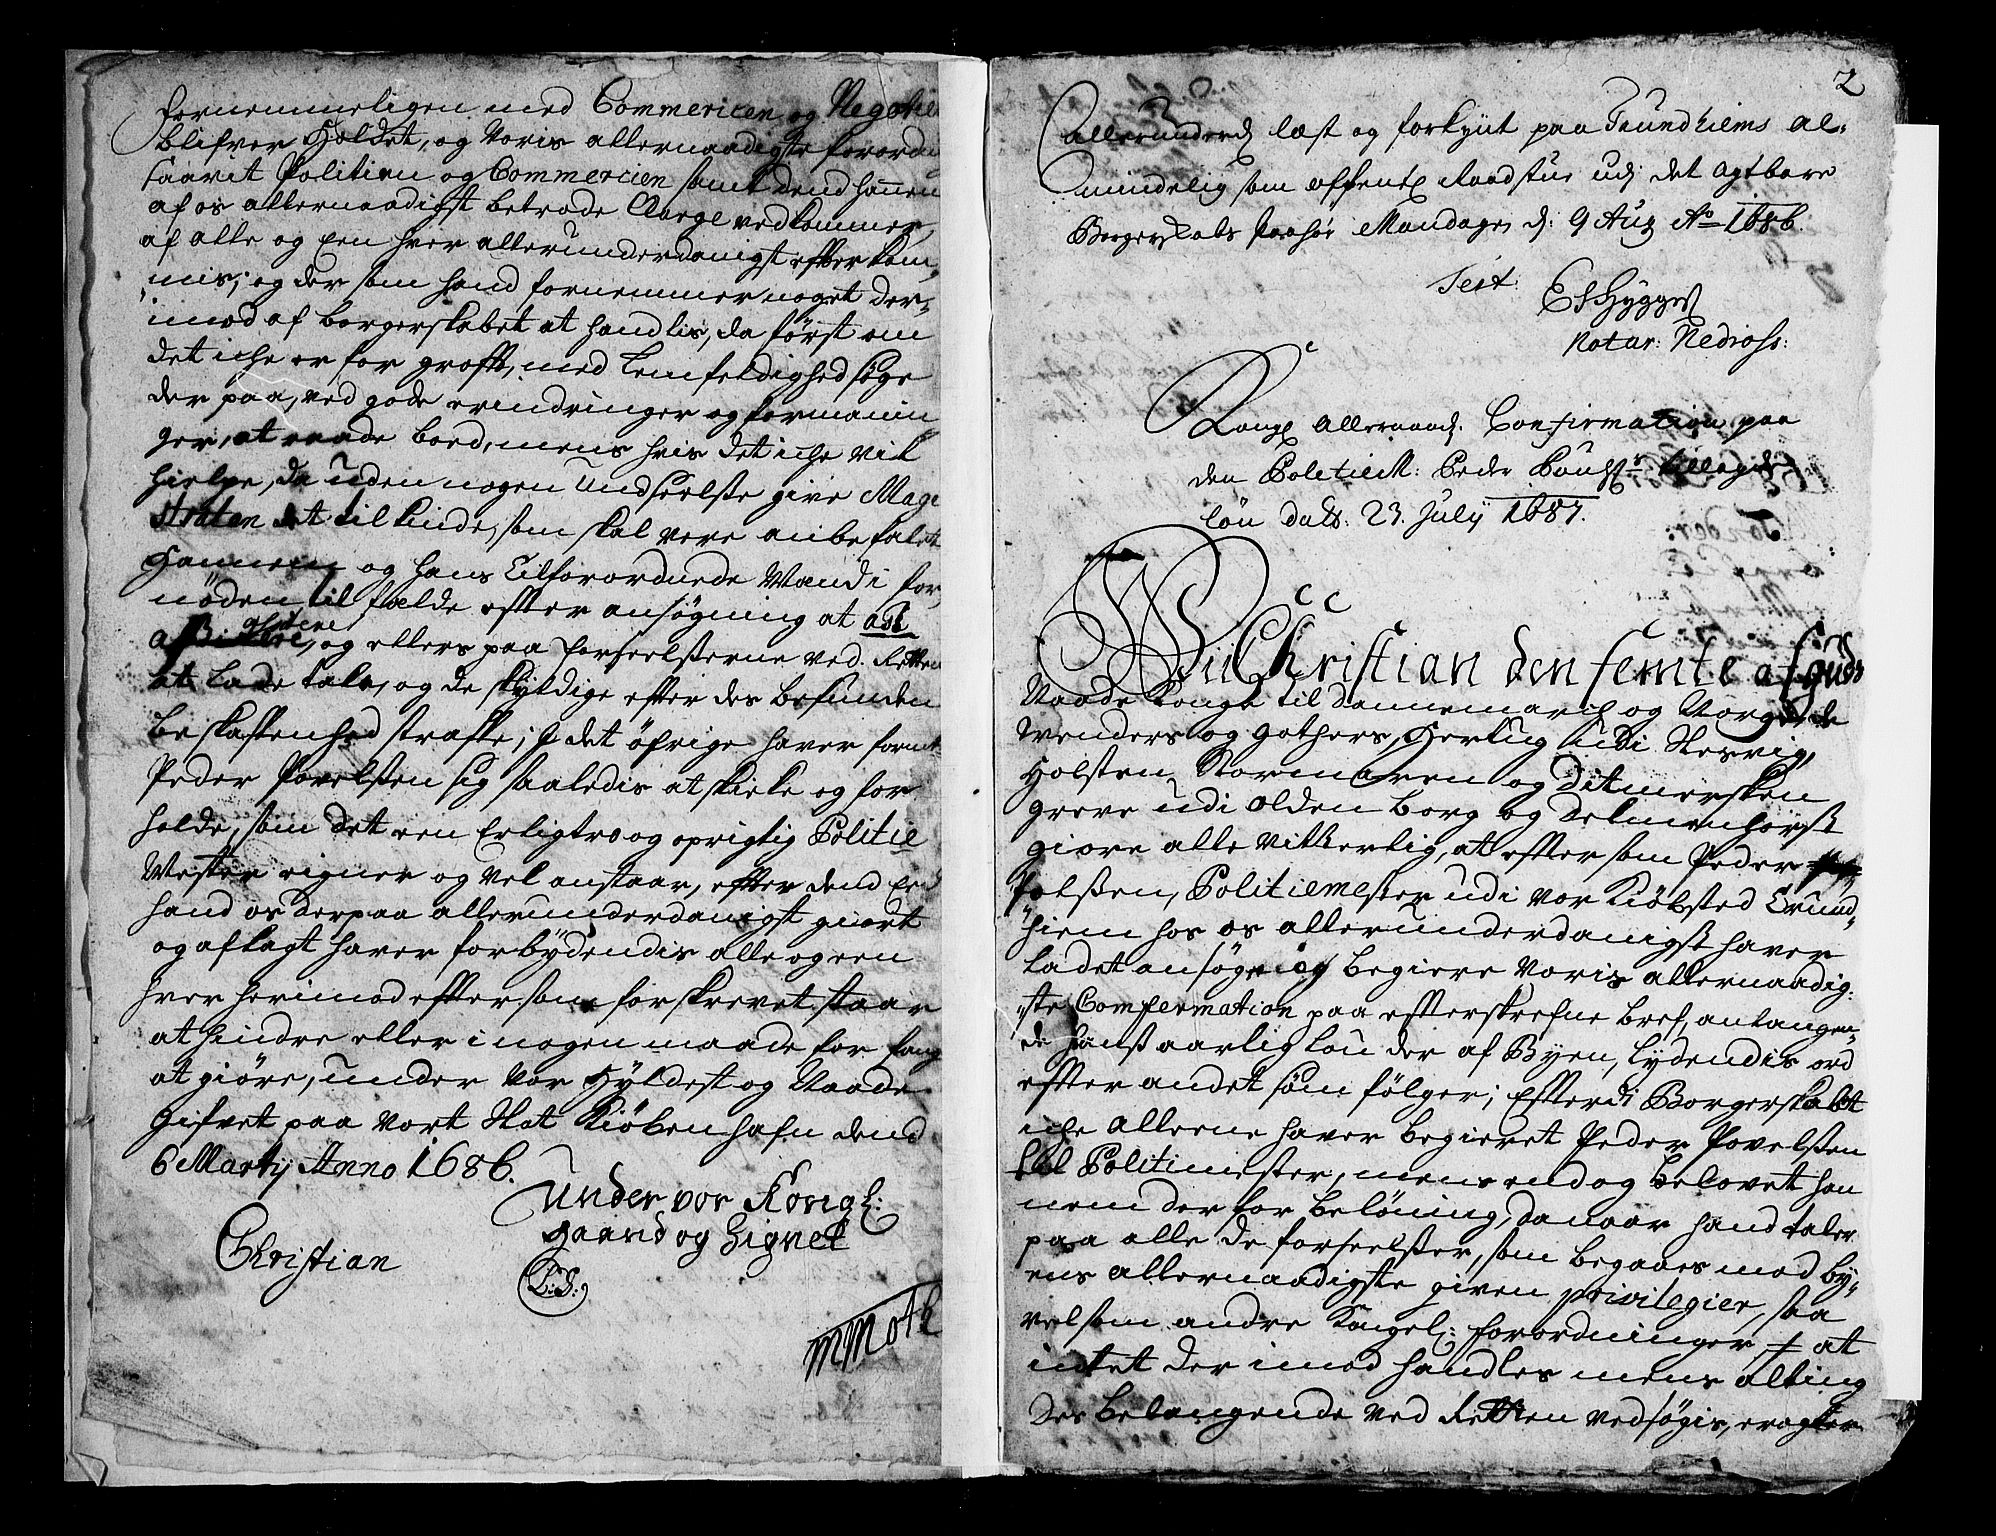 fornemmeligen med Commercien og Negotie
blifver Holdet, og Voris allernaadigste forord
saavit Politien og Commercien samt dend hannem
af os allernaadigst betroede Charge vedkommer,
af alle og een hver allerunderdanigst efterkom„
mis; og der som hand fornemmer noget der„
imod af borgerskabet at handlis, da först om
det iche er for grofft, med Lemfeldighed söge
der paa, ved gode erindringer og formanin
ger, at raade bood, mens hvis det iche vil
hielpe, da uden nogen Undseelsse give Magi
straten det tilkiende, som skal vere anbefalet
Hannem og hans Tilforordnede Mænd i for„
nöden til fælde efter ansögning at adsi
assistere, og ellers paa forseelsserne ved Retten
at Lade tale, og de skyldige efter des befunden
beskaffenhed straffe; I det öfrige haver fornt
Peder Povelssen sig saaledis at skicke og for
holde, som det een Erlig tro og oprigtig Politie
Mester eigner og vel anstaar, efter dend Eed
hand os derpaa allerunderdanigst giort
og aflagt haver forbÿdendis alle og een
hver herimod efter som forskrevet staar
at hindre eller i nogen maade for fang
at giöre, under Vor Hÿldest og Naade
Gifvet paa Vort Slot Kiöbenhafn dend
6 Martij Anno 1686.
Under vor Konigl:
Haand og Signet
Christian
L: S:
M Moth
2
Allerunderd læst og forkÿnt paa Trundhiems al„
mindelig som offentl Raadstue udj det agtbare
Borgerskabs paahör Mandagen d: 9 Aug Ao 1686.
Test:
ESHÿgges
Notar: Nedross:
Kongl Allernaad. Confirmation paa
den Politiem: Peder
Lön datt: 23. Julÿ 1687.
Wii Christian den femte af Guds
Naade Konge til Dannemarck og Norge de
Wenders og Gothers, Hertug udi Slesvig,
Holsten, Stormaren og Ditmersken,
Greve udi Oldenborg og Delmenhorst
giöre alle vitterlig, at eftersom Peder
Polssen, Politiemester udi vor Kiöbsted Trund„
hiem hos os allerunderdanigst haver
Ladet ansöge og begiere Voris allernaadig„
ste Comfermation paa efterskrefne bref, anlangen„
de hans aarlig Lön der af Byen, Lÿdendis ord
efter andet som fölger; Efterdi Borgerskabet
iche alleene haver begieret Peder Povelssen
til Politimester, mens endog belovet han
nem der for belöning, da naar hand taler
paa alle de forseelsser, som begaaes mod bÿ„
ens allernaadigste given privilegier, saa
velsom andre Kongel: forordninger, at
intet der imod handles mens alting
des belangende ved Retten vedsögis, eragter